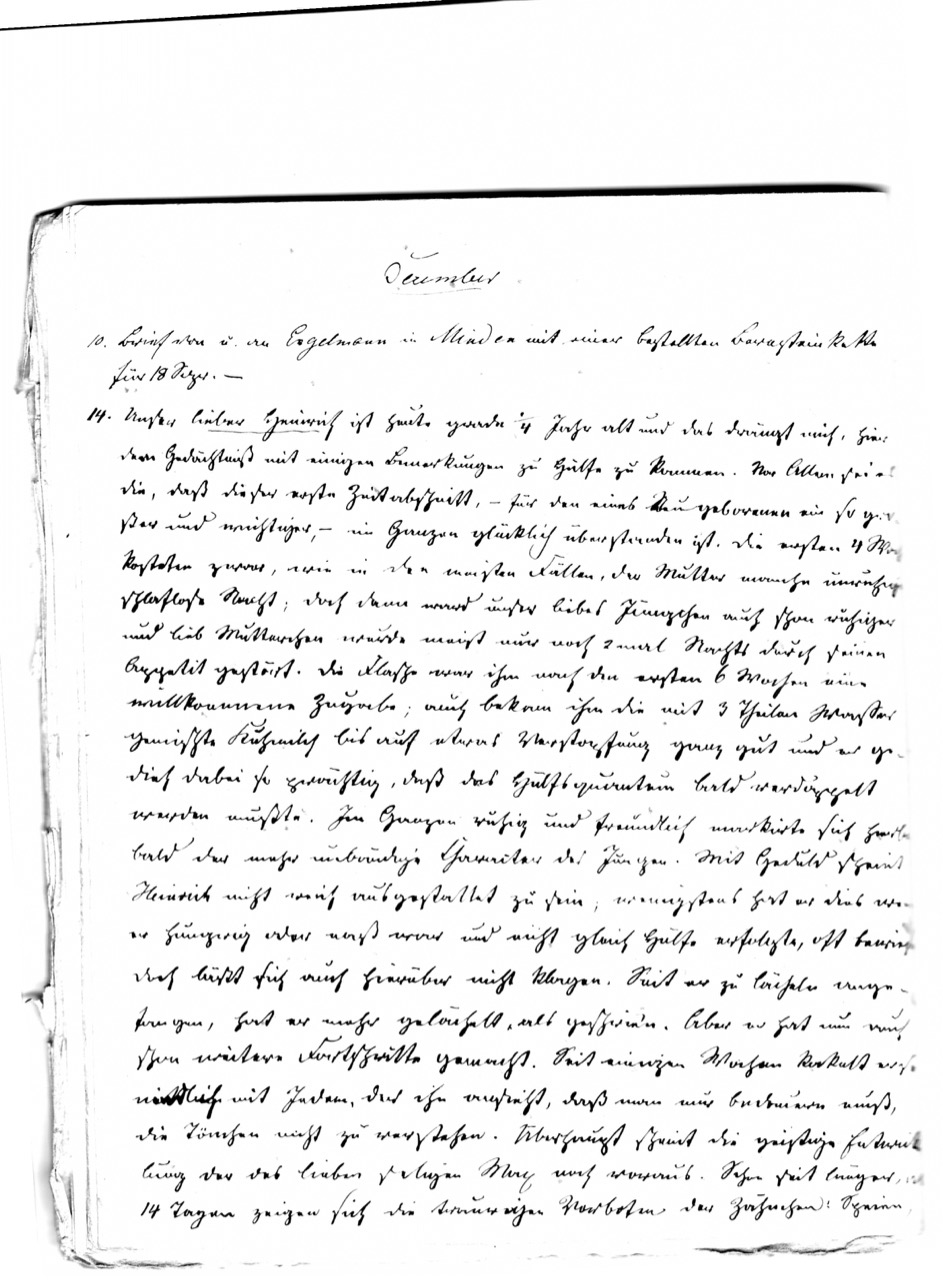 December
10. Brief von u. an Engelmann in Minden mit einer bestellten Bernsteinkette
für 18 Sgr. —
14. Unser lieber Heinrich ist heute grade 1/4 Jahr alt und das drängt mich, hier
dem Gedächtniß mit einigen Bemerkungen zu Hülfe zu kommen. Vor Allem sei es
die, daß dieser erste Zeitabschnitt, – für den eines Neugeborenen ein so gro-
ßer und wichtiger, – im Ganzen glücklich überstanden ist. Die ersten 4 Wo
kosteten zwar, wie in den meisten Fällen, der Mutter manche unruhig
schlaflose Nacht; doch dann ward unser liebes Jüngchen auch schon ruhiger
und lieb Mutterchen wurde meist nur noch 2 mal Nachts durch seinen
Appetit gestört. Die Flasche war ihm nach den ersten 6 Wochen eine
willkommene Zugabe; auch bekam ihm die mit 3 Theilen Wasser
gemischte Kuhmilch bis auf etwas Verstopfung ganz gut und er ge-
dieh dabei so prächtig, daß das Hülfsquantum bald verdoppelt
werden mußte. Im Ganzen ruhig und freundlich markirte sich
bald der mehr unbändige Charakter des Jungen. Mit Geduld scheint
Heinrich nicht reich ausgestattet zu sein; wenigstens hat er dies we
er hungrig oder naß war und nicht gleich Hülfe erfolgte, oft bewies
doch läßt sich auch hierüber nicht klagen. Seit er zu lächeln ange-
fangen, hat er mehr gelächelt, als geschrieen. Aber er hat nun auch
schon weitere Fortschritte gemacht. Seit einigen Wochen kakelt er so
niedlich mit Jedem, der ihn ansieht, daß man nur bedauern muß,
die Tönchen nicht zu verstehen. Überhaupt scheint die geistige Entwick
lung der des lieben seligen Max noch voraus. Schon seit länger,
14 Tagen zeigen sich die traurigen Vorboten der Zähnchen: Speien,